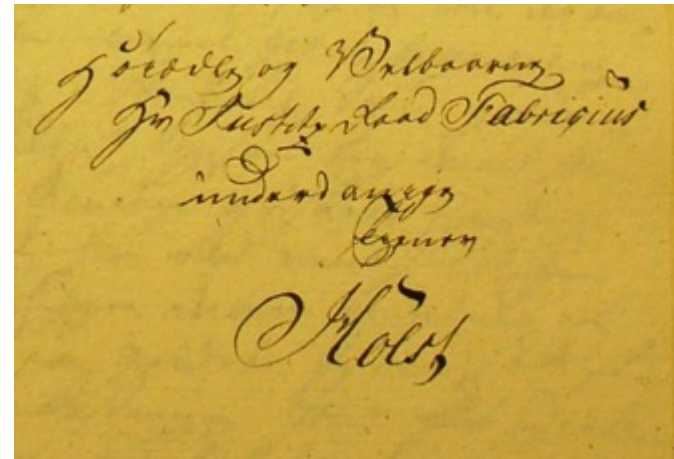 Høiædle og Velbaarne
Hr Justitz Raad Fabricius
underdanige
tiener
Holst